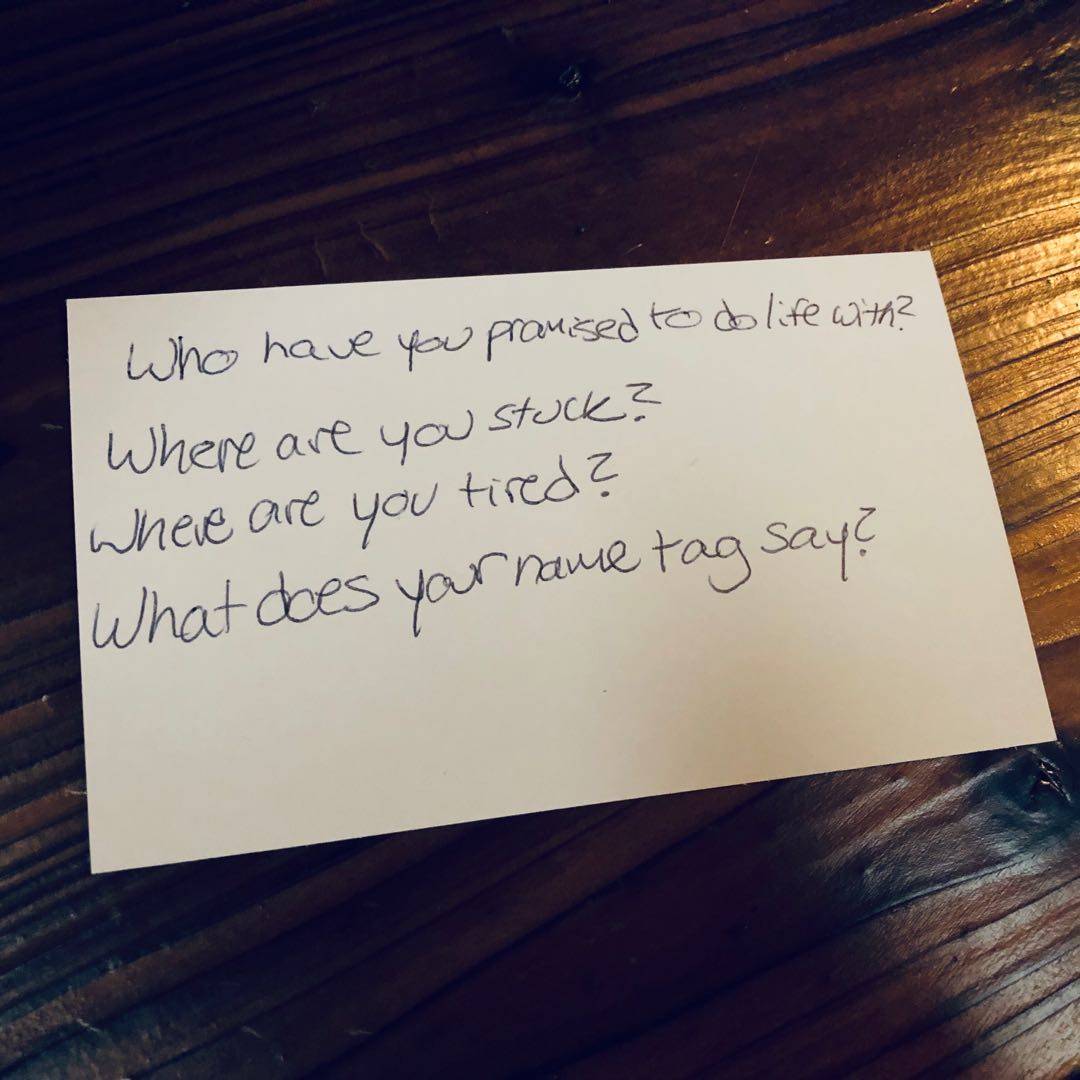 Who have you promised to do life with?
Where are you stuck?
Where are you tired?
What does your name tag say?